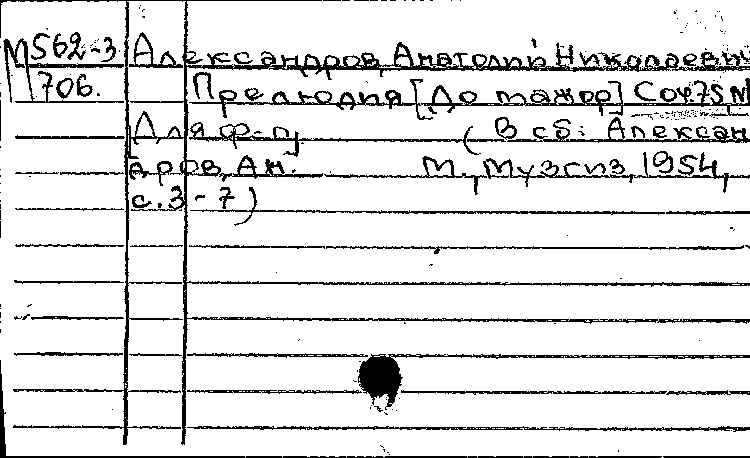 М562-3 Александров, Анатолий Николаеви
706. Прелюдия [До мажор] Соч.75, №
Для ф-п. (В сб: Алексан
дров, Ан. М., Музгиз, 1954,
с.3-7)